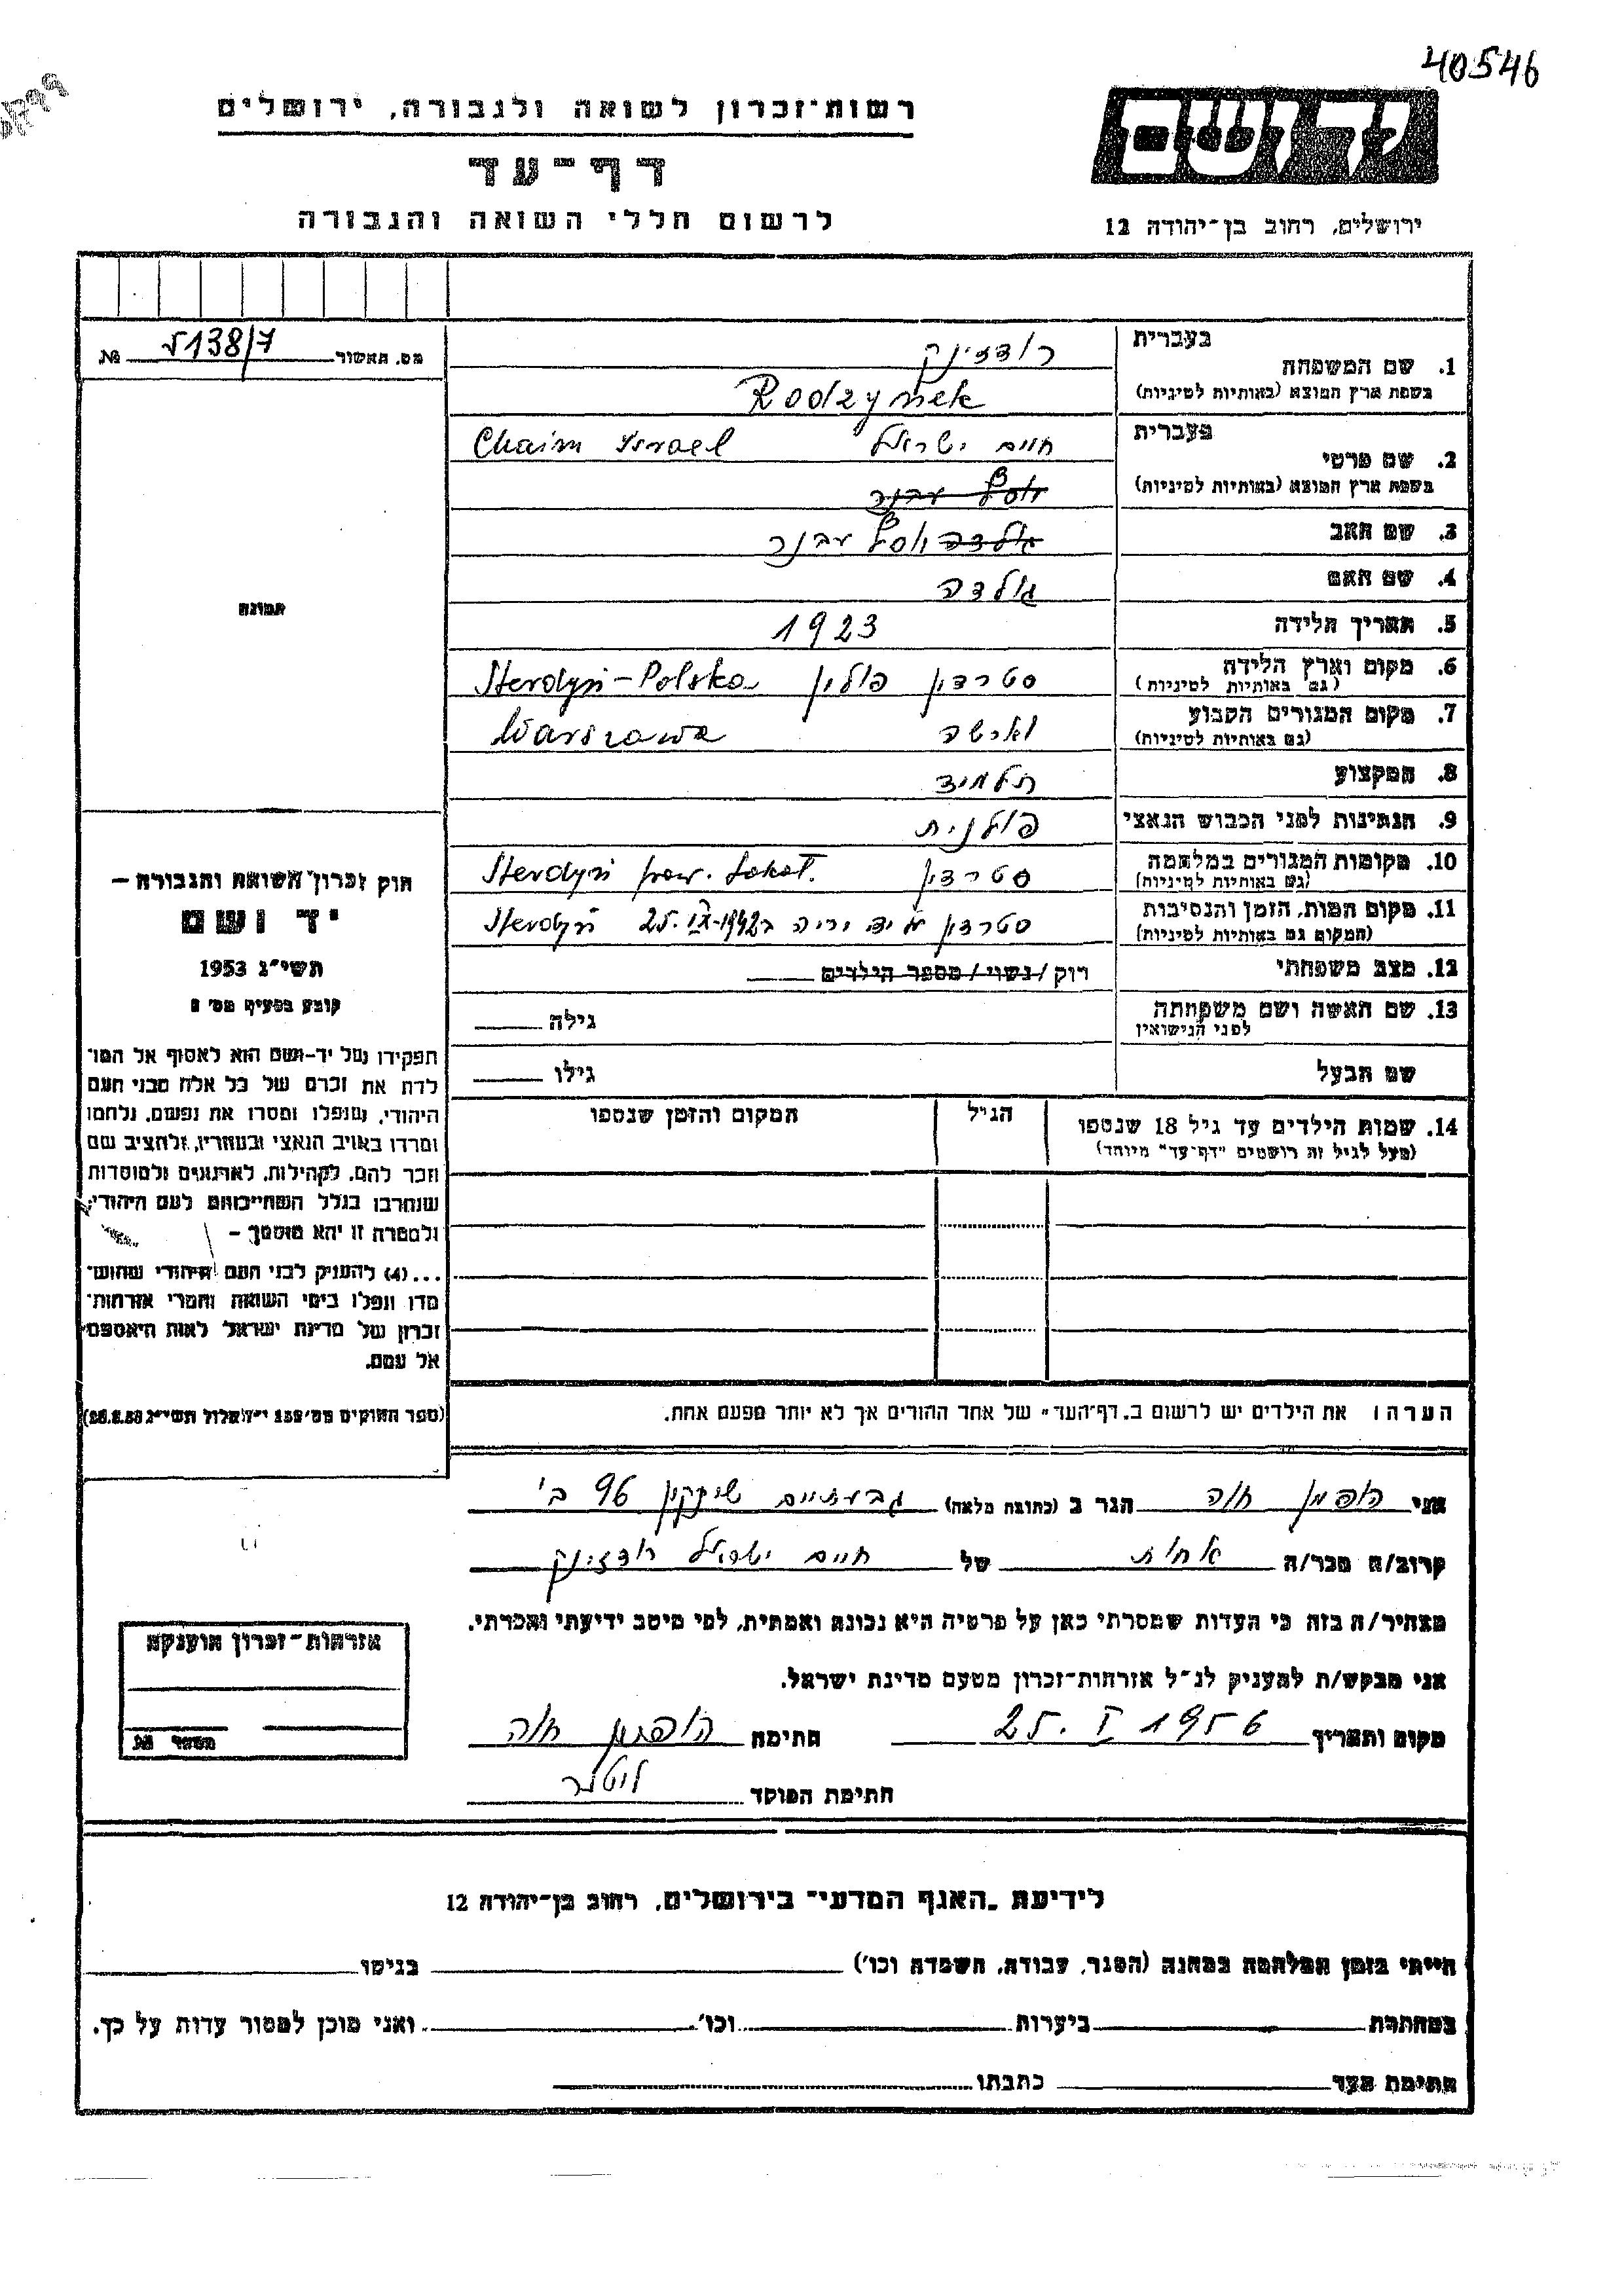 40546
רשות־זכרון לשואה ולגבורה, ירושלים
יד ושם
דף־עד
לרשום חללי השואה והגבורה
ירושלים, רחוב בן־יהודה 12
מס. האשור 138/7 №
בעברית
1. שם המשפחה
רודזינק
בשפת ארץ המוצא (באותיות לטיניות)
Rodzynek
בעברית
2. שם פרטי
חיים ישראל Chaim Israel
בשפת ארץ המוצא (באותיות לטיניות)
3. שם האב
יוסף אבנר
4. שם האם
גולדה
5. תאריך הלידה
1923
6. מקום וארץ הלידה
(גם באותיות לטיניות)
סטרדין פולין Sterdyń - Polska
7. מקום המגורים הקבוע
(גם באותיות לטיניות)
וארשה Warszawa
8. המקצוע
תלמיד
9. הנתינות לפני הכבוש הנאצי
פולנית
10. מקומות המגורים במלחמה
(גם באותיות לטיניות)
סטרדין Sterdyń pow. Sokoł.
11. מקום המות, הזמן והנסיבות
(המקום גם באותיות לטיניות)
סטרדין על יד יריה ב 25.IX-1942 Sterdyń
12. מצב משפחתי
רוק / נשוי / מספר הילדים
13. שם האשה ושם משפחתה
לפני הנישואין
גילה
שם הבעל
גילו
14. שמות הילדים עד גיל 18 שנספו
(מעל לגיל זה רושמים "דף־עד" מיוחד)
הגיל
המקום והזמן שנספו
תמונה
חוק זכרון השואה והגבורה –
יד ושם
תשי״ג 1953
קובע בסעיף מס׳ 2
תפקידו של יד-ושם הוא לאסוף אל המו־
לדת את זכרם של כל אלה מבני העם
היהודי, שנפלו ומסרו את נפשם, נלחמו
ומרדו באויב הנאצי ובעוזריו, ולהציב שם
וזכר להם, לקהילות, לארגונים ולמוסדות
שנחרבו בגלל השתייכותם לעם היהודי,
ולמטרה זו יהא מוסמך –
...(4) להעניק לבני העם היהודי שהוש־
מדו ונפלו בימי השואה והמרי אזרחות־
זכרון של מדינת ישראל לאות היאספם
אל עמם.
(ספר החוקים מס׳ 132 י״ז אלול תשי״ג 28.8.53)
הערה: את הילדים יש לרשום ב„דף־העד" של אחד ההורים אך לא יותר מפעם אחת.
אני הופמן חוה הגר ב (כתובת מלאה) גבעתיים שינקין 96 ב'
קרוב/ה מכר/ה אחות של חיים ישראל רודזינק
מצהיר/ה בזה כי העדות שמסרתי כאן על פרטיה היא נכונה ואמתית, לפי מיטב ידיעתי והכרתי.
אני מבקש/ת להעניק לנ״ל אזרחות־זכרון מטעם מדינת ישראל.
מקום ותאריך 25. I 1956 חתימה הופמן חוה
חתימת הפוקד
אזרחות־זכרון הוענקה
מספר №
לידיעת „האגף המדעי" בירושלים, רחוב בן־יהודה 12
הייתי בזמן המלחמה במחנה (הסגר, עבודה, השמדה וכו׳) בגיטו
במחתרת ביערות וכו׳ ואני מוכן למסור עדות על כך.
חתימת העד כתבתו